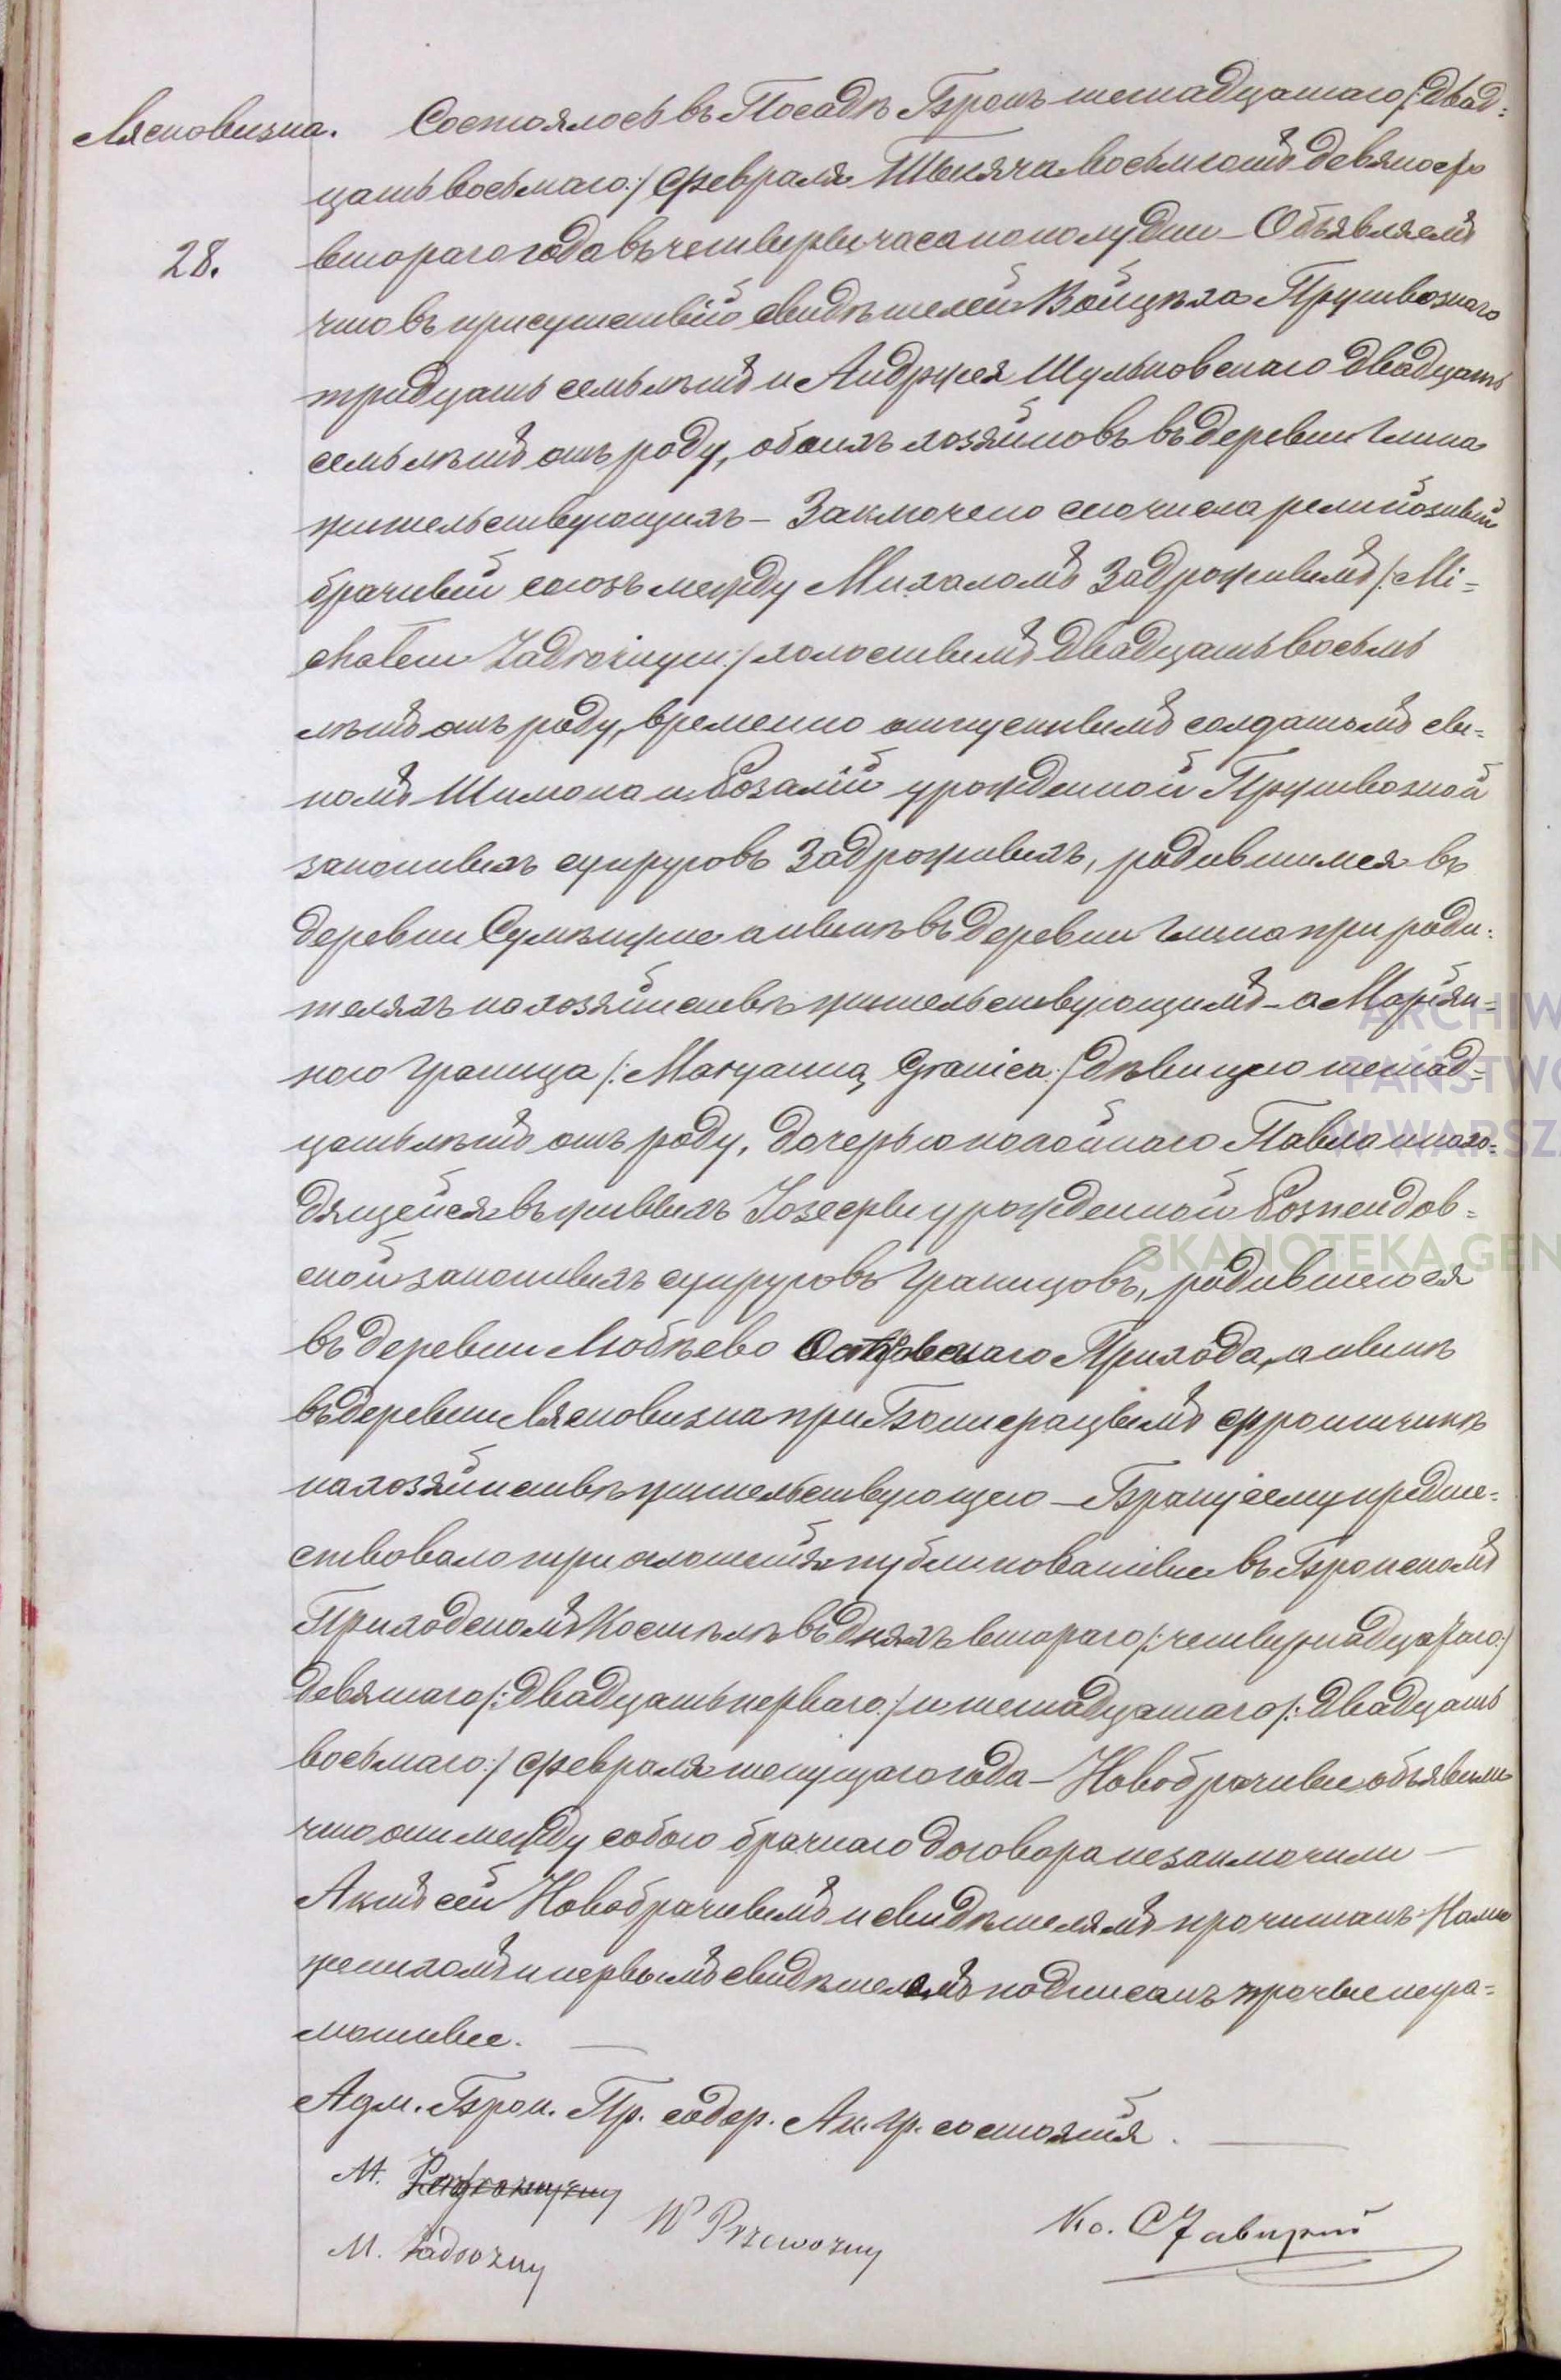 Лясковизна. Состоялось въ Посадѣ Брокъ шестнадцатаго /: двад-
цать восьмаго :/ Февраля Тысяча восемьсотъ девяносто
28. втораго года въ четыре часа по полудни – Объявляемъ
что въ присутствіи свидѣтелей Войцѣха Пршивознаго
тридцать семь лѣтъ и Андржея Шульковскаго двадцать
семь лѣтъ отъ роду, обоихъ хозяиновъ въ деревни Глина
жительствующихъ – Заключено сего числа религіозный
брачный союзъ между Михаломъ Задрожнымъ /: Mi-
chałem Zadrożnym :/ холостымъ двадцать восемь
лѣтъ отъ роду, временно отпускнымъ солдатомъ сы-
номъ Шимона и Розаліи урожденной Пршивозной
законныхъ супруговъ Задрожныхъ, родившимся въ
деревни Сумѣжне а нынѣ въ деревни Глина при роди-
теляхъ на хозяйствѣ жительствующимъ – а Маріян-
ною Граница /: Maryanną Granica :/ дѣвицею шестнад-
цать лѣтъ отъ роду, дочерью покойнаго Павла и нахо-
дящейся въ живыхъ Юзефы урожденной Розпендов-
ской законныхъ супруговъ Границовъ, родившеюся
въ деревни Любѣево Островскаго Прихода, а нынѣ
въ деревни Лясковизна при Бонифрацымъ Фронтчикѣ
на хозяйствѣ жительствующею – Браку сему предше-
ствовало три оглошенія публикованные въ Брокскомъ
Приходскомъ Костѣлѣ въ дняхъ втораго /: четырнадцатаго :/
девятаго /: двадцать перваго :/ и шестнадцатаго /: двадцать
восьмаго :/ Февраля текущаго года – Новобрачные объявили
что они между собою брачнаго договора не заключили –
Актъ сей Новобрачнымъ и свидѣтелямъ прочитанъ Нами
женихомъ и первымъ свидѣтелемъ подписанъ прочые негра-
мотные. –
Адм. Брок. Пр. содер. Ак. гр. состоянія. –
M. Zadrożny W Przewozny Кс. С Завицкій
M. Zadrozny